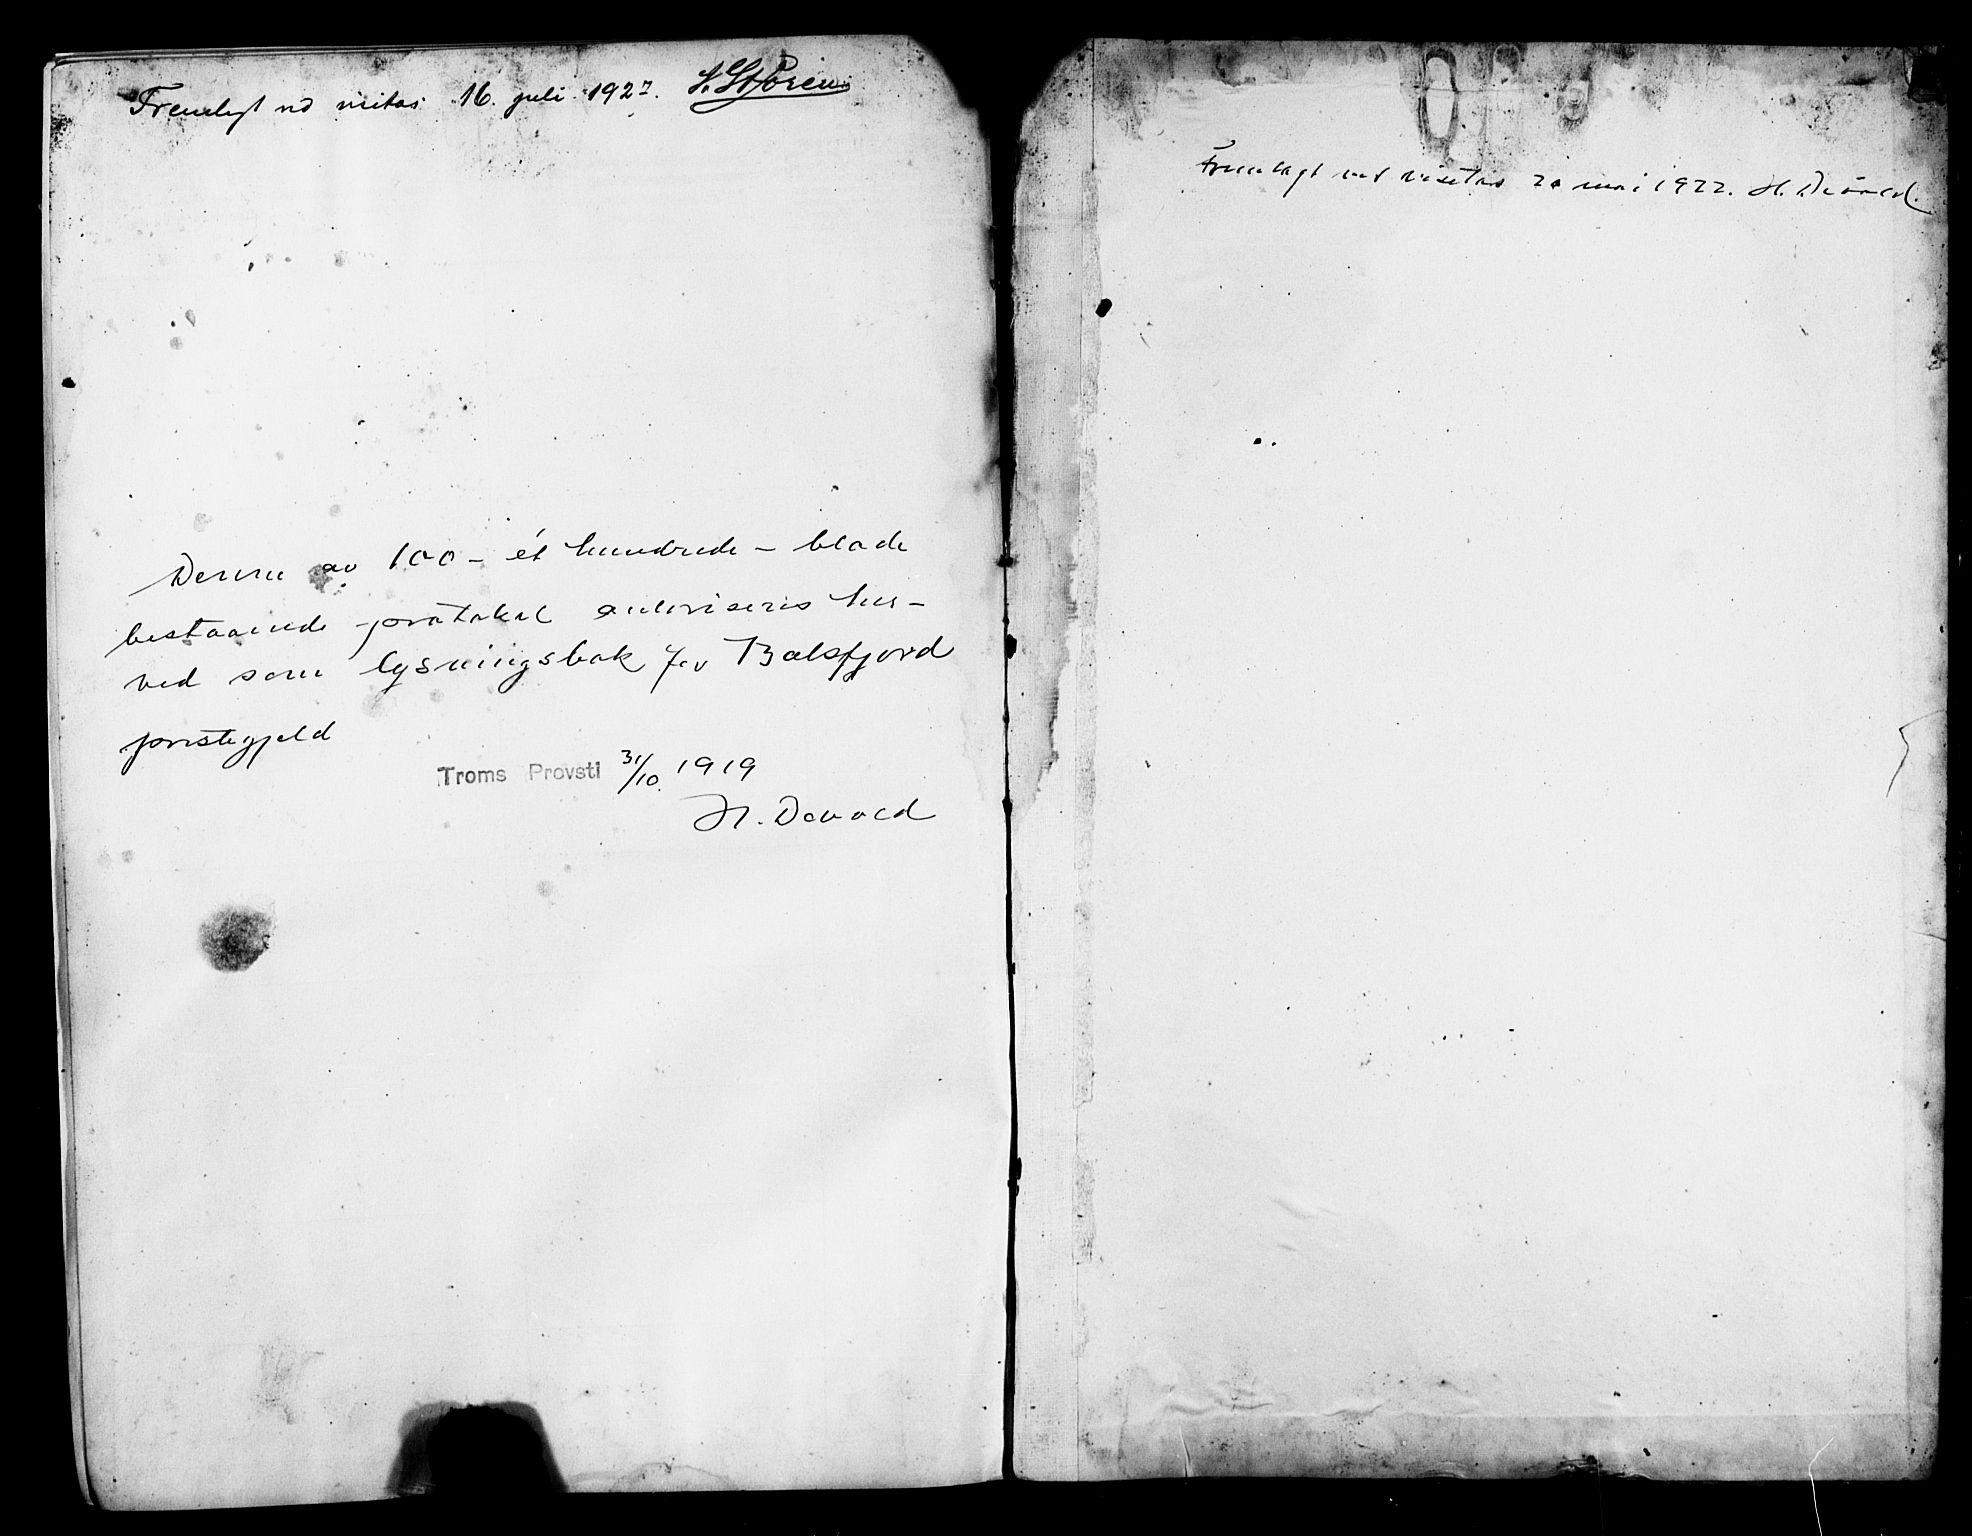 Fremlagt ved visitas 16. juli 1927. S. Støren
Denne av 100 - ét hundrede - blade
bestaaende protokol autoriseres her-
ved som lysningsbok for Balsfjord
prestegjeld
Troms Provsti 31/10. 1919
H. Devold
Fremlagt ved visitas 20 mai 1922. H. Devold.